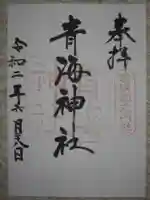 奉拝
青海神社
令和二年六月六日